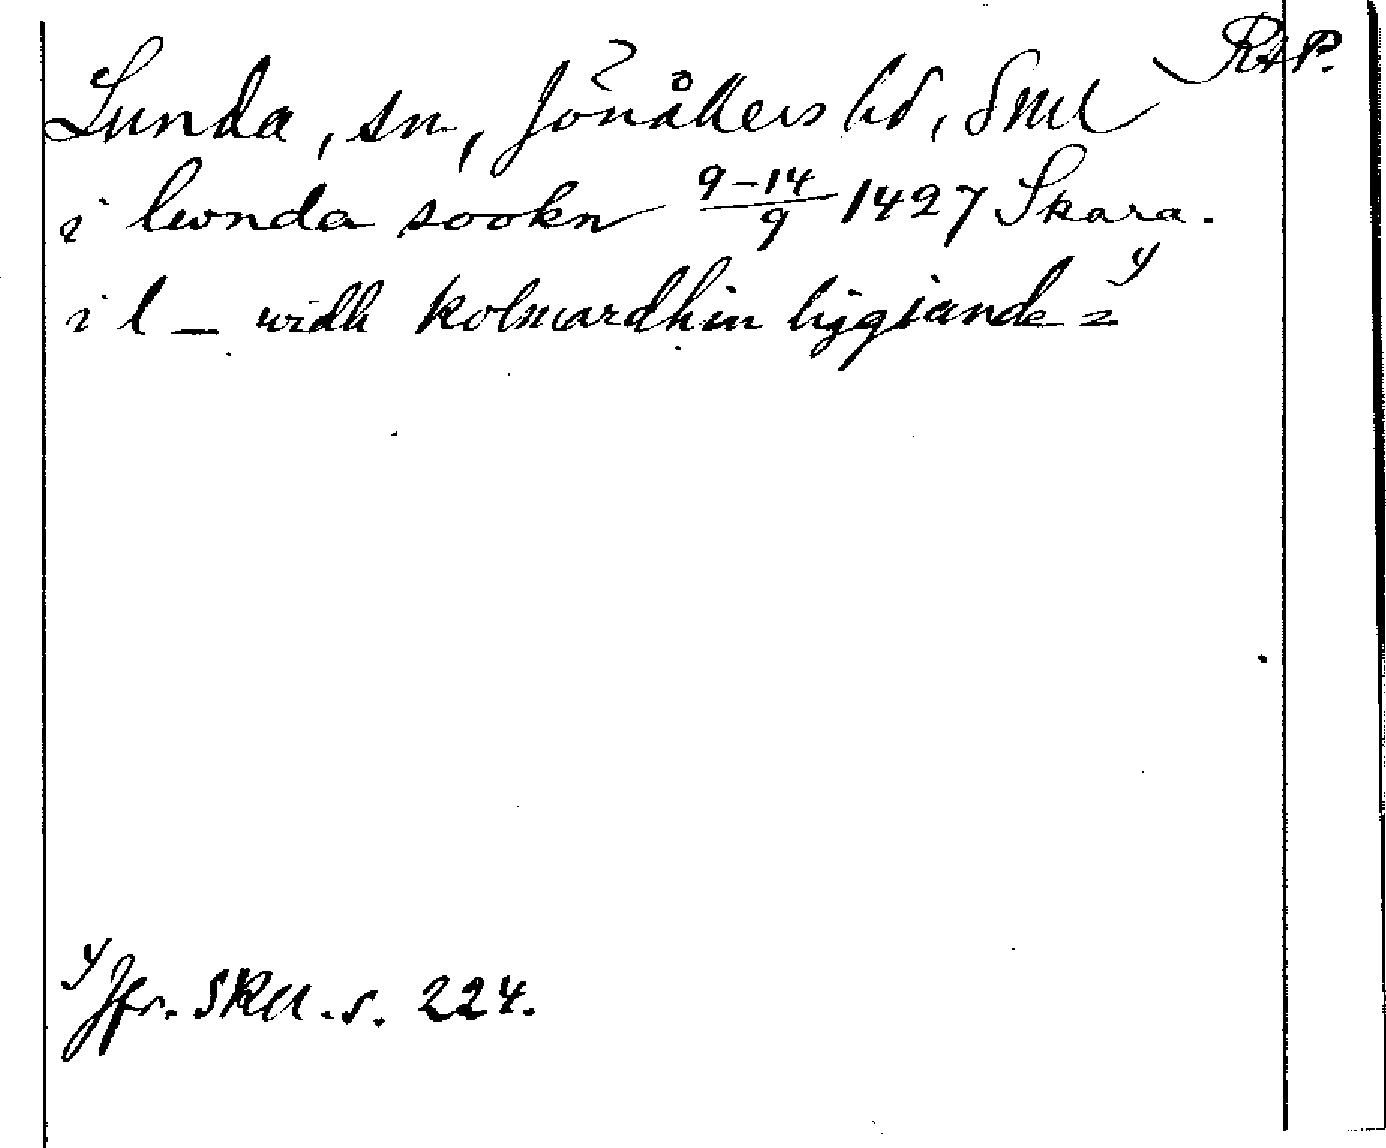 RAP.
Lunda, sn, Jönåkers hd, Sml
i lwnda sookn 9-14/9 1427 Skara.
i l – widh kolmardhin liggiande = 1)
1) Jfr. SRU. s. 224.